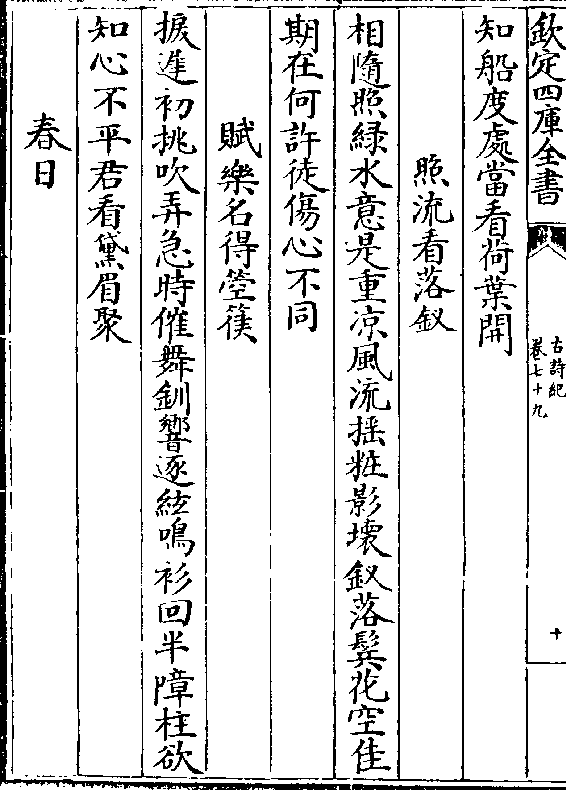 欽定四庫全書
古詩紀
卷七十九
十
知船度處當看荷葉開
照流看落釵
相隨照緑水意是重凉風流揺粧影壞釵落鬂花空佳
期在何許徒傷心不同
賦樂名得箜篌
捩遲初挑吹弄急時催舞釧響逐絃鳴衫回半障柱欲
知心不平君看黛眉聚
春日